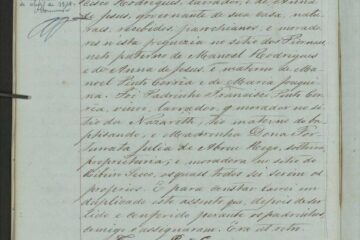 cisco Rodrigues, lavrador, e de Anna
de Jesus, governante de sua casa, natu-
raes, recebidos, parochianos, e morado-
res nesta freguezia no sitio dos Piornaes,
neto paterno de Manoel Rodrigues
e de Anna de Jesus, e materno de Ma-
noel Pinto Correia e de Maria Joaqui-
na. Foi Padrinho Francisco Pinto Cor-
reia, viuvo, lavrador, morador no si-
tio da Nazareth, tio materno do ba-
ptisando, e Madrinha Dona For-
tunata Julia de Abreu Rego, solteira,
proprietaria, e moradora no sitio do
Ribeiro Secco, os quaes todos sei serem os
proprios. E para constar lavrei em
duplicado este assento que, depois de ser
lido e conferido perante os padrinhos,
comigo o assignaram. Era ut retro.
de 1918